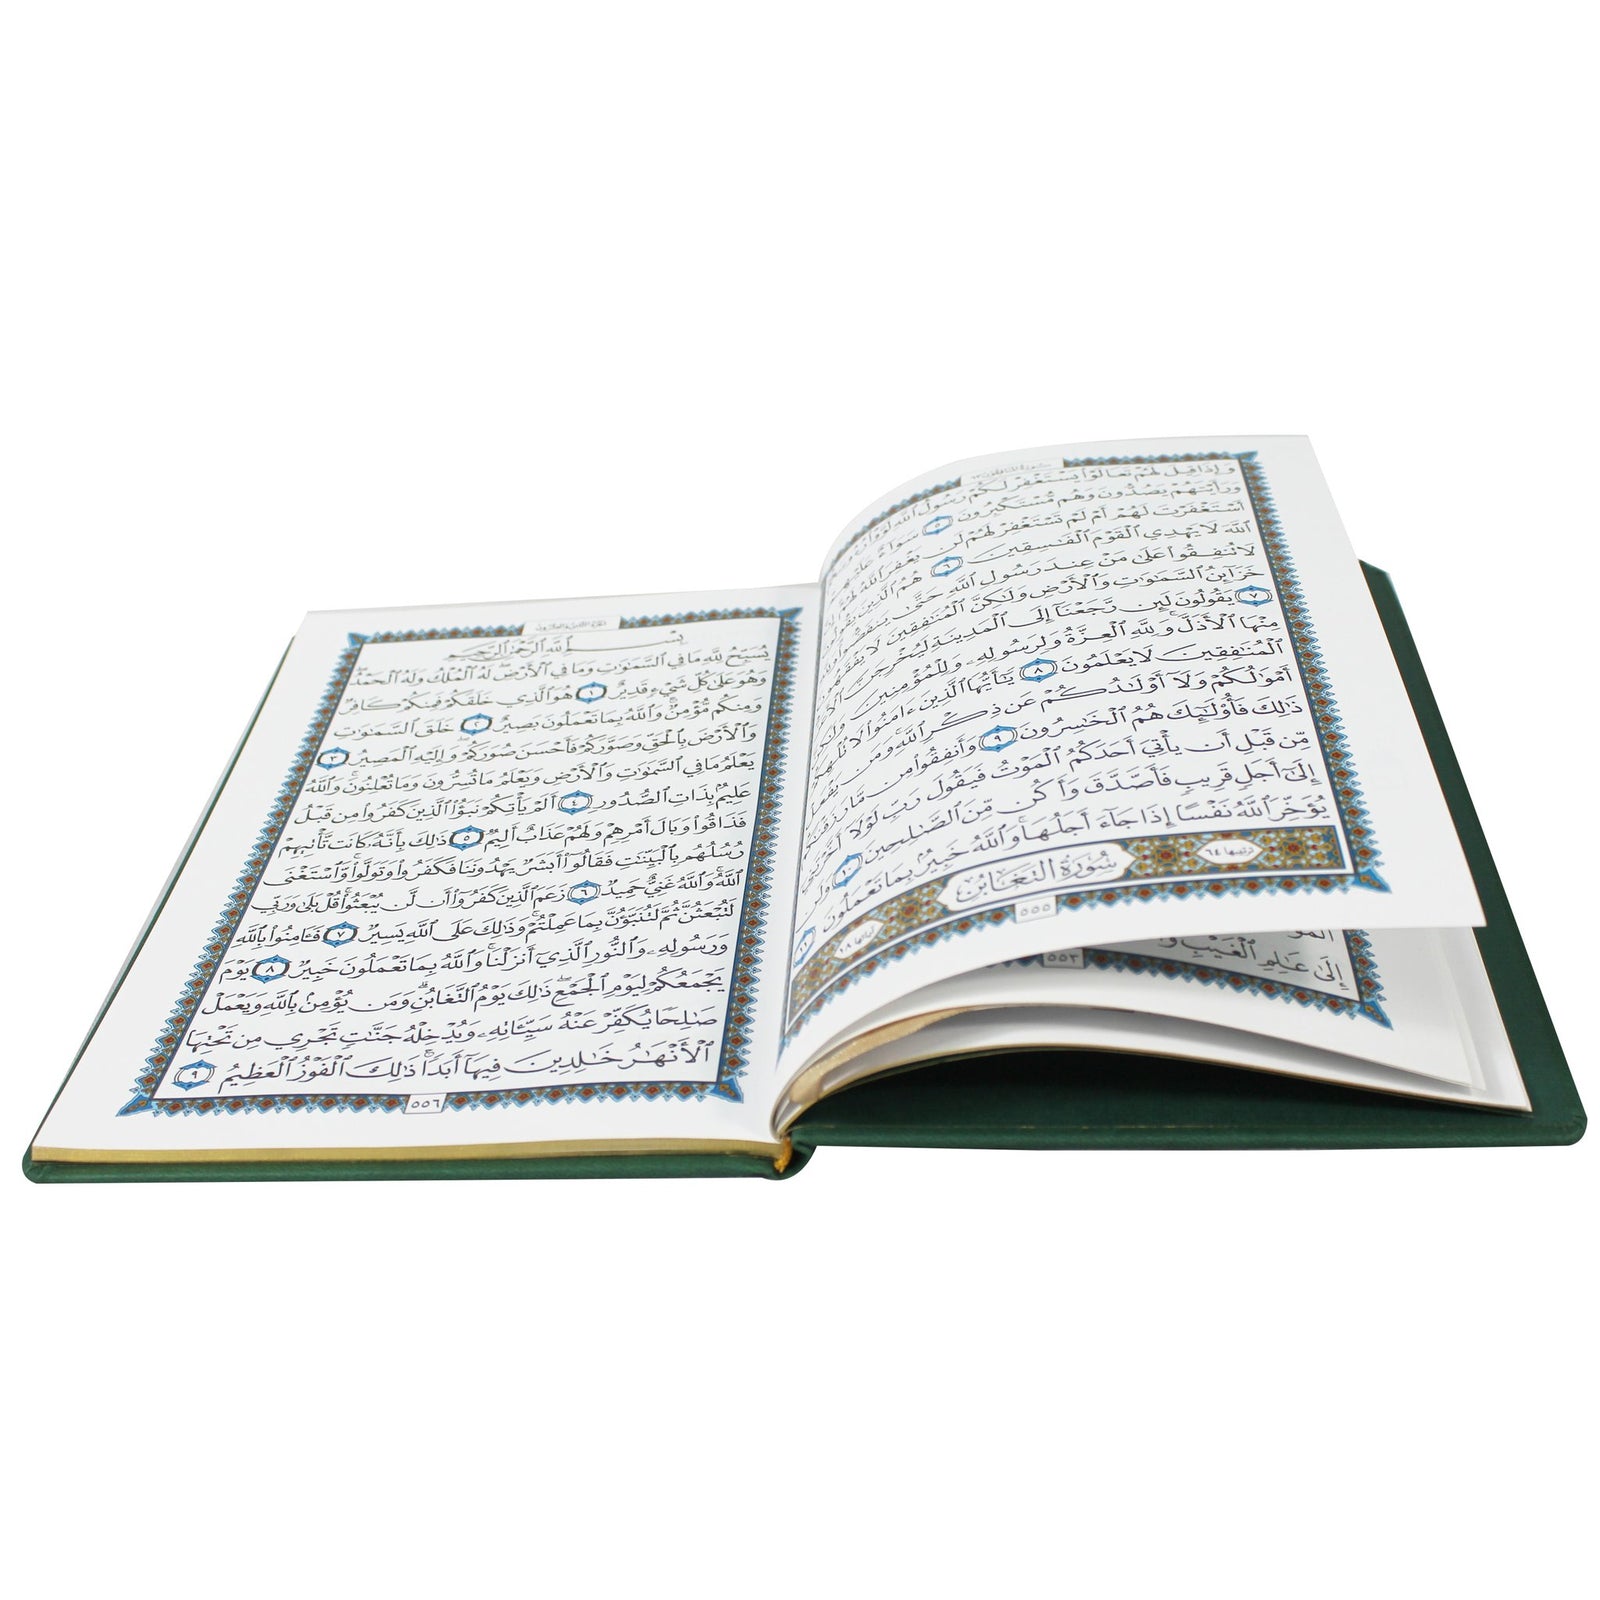 سورة المنافقون ٦٣
وَإِذَا قِيلَ لَهُمْ تَعَالَوْا۟ يَسْتَغْفِرْ لَكُمْ رَسُولُ ٱللَّهِ لَوَّوْا۟
وَرَأَيْتَهُمْ يَصُدُّونَ وَهُم مُّسْتَكْبِرُونَ ٥ سَوَآءٌ عَلَيْهِمْ
أَسْتَغْفَرْتَ لَهُمْ أَمْ لَمْ تَسْتَغْفِرْ لَهُمْ لَن يَغْفِرَ ٱللَّهُ لَهُمْ
ٱللَّهَ لَا يَهْدِي ٱلْقَوْمَ ٱلْفَٰسِقِينَ ٦ هُمُ ٱلَّذِينَ يَقُولُونَ
لَا تُنفِقُوا۟ عَلَىٰ مَنْ عِندَ رَسُولِ ٱللَّهِ حَتَّىٰ يَنفَضُّوا۟
خَزَآئِنُ ٱلسَّمَٰوَٰتِ وَٱلْأَرْضِ وَلَٰكِنَّ ٱلْمُنَٰفِقِينَ لَا يَفْقَهُونَ ٧
يَقُولُونَ لَئِن رَّجَعْنَآ إِلَى ٱلْمَدِينَةِ لَيُخْرِجَنَّ
مِنْهَا ٱلْأَذَلَّ وَلِلَّهِ ٱلْعِزَّةُ وَلِرَسُولِهِۦ وَلِلْمُؤْمِنِينَ وَلَٰكِنَّ
ٱلْمُنَٰفِقِينَ لَا يَعْلَمُونَ ٨ يَٰٓأَيُّهَا ٱلَّذِينَ ءَامَنُوا۟ لَا تُلْهِكُمْ
أَمْوَٰلُكُمْ وَلَآ أَوْلَٰدُكُمْ عَن ذِكْرِ ٱللَّهِ وَمَن يَفْعَلْ
ذَٰلِكَ فَأُو۟لَٰٓئِكَ هُمُ ٱلْخَٰسِرُونَ ٩ وَأَنفِقُوا۟ مِن مَّا رَزَقْنَٰكُم
مِّن قَبْلِ أَن يَأْتِيَ أَحَدَكُمُ ٱلْمَوْتُ فَيَقُولَ رَبِّ لَوْلَآ أَخَّرْتَنِيٓ
إِلَىٰٓ أَجَلٍ قَرِيبٍ فَأَصَّدَّقَ وَأَكُن مِّنَ ٱلصَّٰلِحِينَ ١٠ وَلَن
يُؤَخِّرَ ٱللَّهُ نَفْسًا إِذَا جَآءَ أَجَلُهَا وَٱللَّهُ خَبِيرٌۢ بِمَا تَعْمَلُونَ ١١
ترتيبها ٦٤ سُورَةُ ٱلتَّغَابُنِ آياتها ١٨
٥٥٥
إِلَىٰ عَٰلِمِ ٱلْغَيْبِ
٥٥٣
الجزء الثامن والعشرون
بِسْمِ ٱللَّهِ ٱلرَّحْمَٰنِ ٱلرَّحِيمِ
يُسَبِّحُ لِلَّهِ مَا فِي ٱلسَّمَٰوَٰتِ وَمَا فِي ٱلْأَرْضِ لَهُ ٱلْمُلْكُ وَلَهُ ٱلْحَمْدُ
وَهُوَ عَلَىٰ كُلِّ شَيْءٍ قَدِيرٌ ١ هُوَ ٱلَّذِي خَلَقَكُمْ فَمِنكُمْ كَافِرٌ
وَمِنكُم مُّؤْمِنٌ وَٱللَّهُ بِمَا تَعْمَلُونَ بَصِيرٌ ٢ خَلَقَ ٱلسَّمَٰوَٰتِ
وَٱلْأَرْضَ بِٱلْحَقِّ وَصَوَّرَكُمْ فَأَحْسَنَ صُوَرَكُمْ وَإِلَيْهِ ٱلْمَصِيرُ ٣
يَعْلَمُ مَا فِي ٱلسَّمَٰوَٰتِ وَٱلْأَرْضِ وَيَعْلَمُ مَا تُسِرُّونَ وَمَا تُعْلِنُونَ وَٱللَّهُ
عَلِيمٌۢ بِذَاتِ ٱلصُّدُورِ ٤ أَلَمْ يَأْتِكُمْ نَبَؤُا۟ ٱلَّذِينَ كَفَرُوا۟ مِن قَبْلُ
فَذَاقُوا۟ وَبَالَ أَمْرِهِمْ وَلَهُمْ عَذَابٌ أَلِيمٌ ٥ ذَٰلِكَ بِأَنَّهُۥ كَانَت تَّأْتِيهِمْ
رُسُلُهُم بِٱلْبَيِّنَٰتِ فَقَالُوٓا۟ أَبَشَرٌ يَهْدُونَنَا فَكَفَرُوا۟ وَتَوَلَّوا۟ وَّٱسْتَغْنَى
ٱللَّهُ وَٱللَّهُ غَنِيٌّ حَمِيدٌ ٦ زَعَمَ ٱلَّذِينَ كَفَرُوٓا۟ أَن لَّن يُبْعَثُوا۟ قُلْ بَلَىٰ وَرَبِّي
لَتُبْعَثُنَّ ثُمَّ لَتُنَبَّؤُنَّ بِمَا عَمِلْتُمْ وَذَٰلِكَ عَلَى ٱللَّهِ يَسِيرٌ ٧ فَـَٔامِنُوا۟ بِٱللَّهِ
وَرَسُولِهِۦ وَٱلنُّورِ ٱلَّذِيٓ أَنزَلْنَا وَٱللَّهُ بِمَا تَعْمَلُونَ خَبِيرٌ ٨ يَوْمَ
يَجْمَعُكُمْ لِيَوْمِ ٱلْجَمْعِ ذَٰلِكَ يَوْمُ ٱلتَّغَابُنِ وَمَن يُؤْمِنۢ بِٱللَّهِ وَيَعْمَلْ
صَٰلِحًا يُكَفِّرْ عَنْهُ سَيِّـَٔاتِهِۦ وَيُدْخِلْهُ جَنَّٰتٍ تَجْرِي مِن تَحْتِهَا
ٱلْأَنْهَٰرُ خَٰلِدِينَ فِيهَآ أَبَدًا ذَٰلِكَ ٱلْفَوْزُ ٱلْعَظِيمُ ٩
٥٥٦